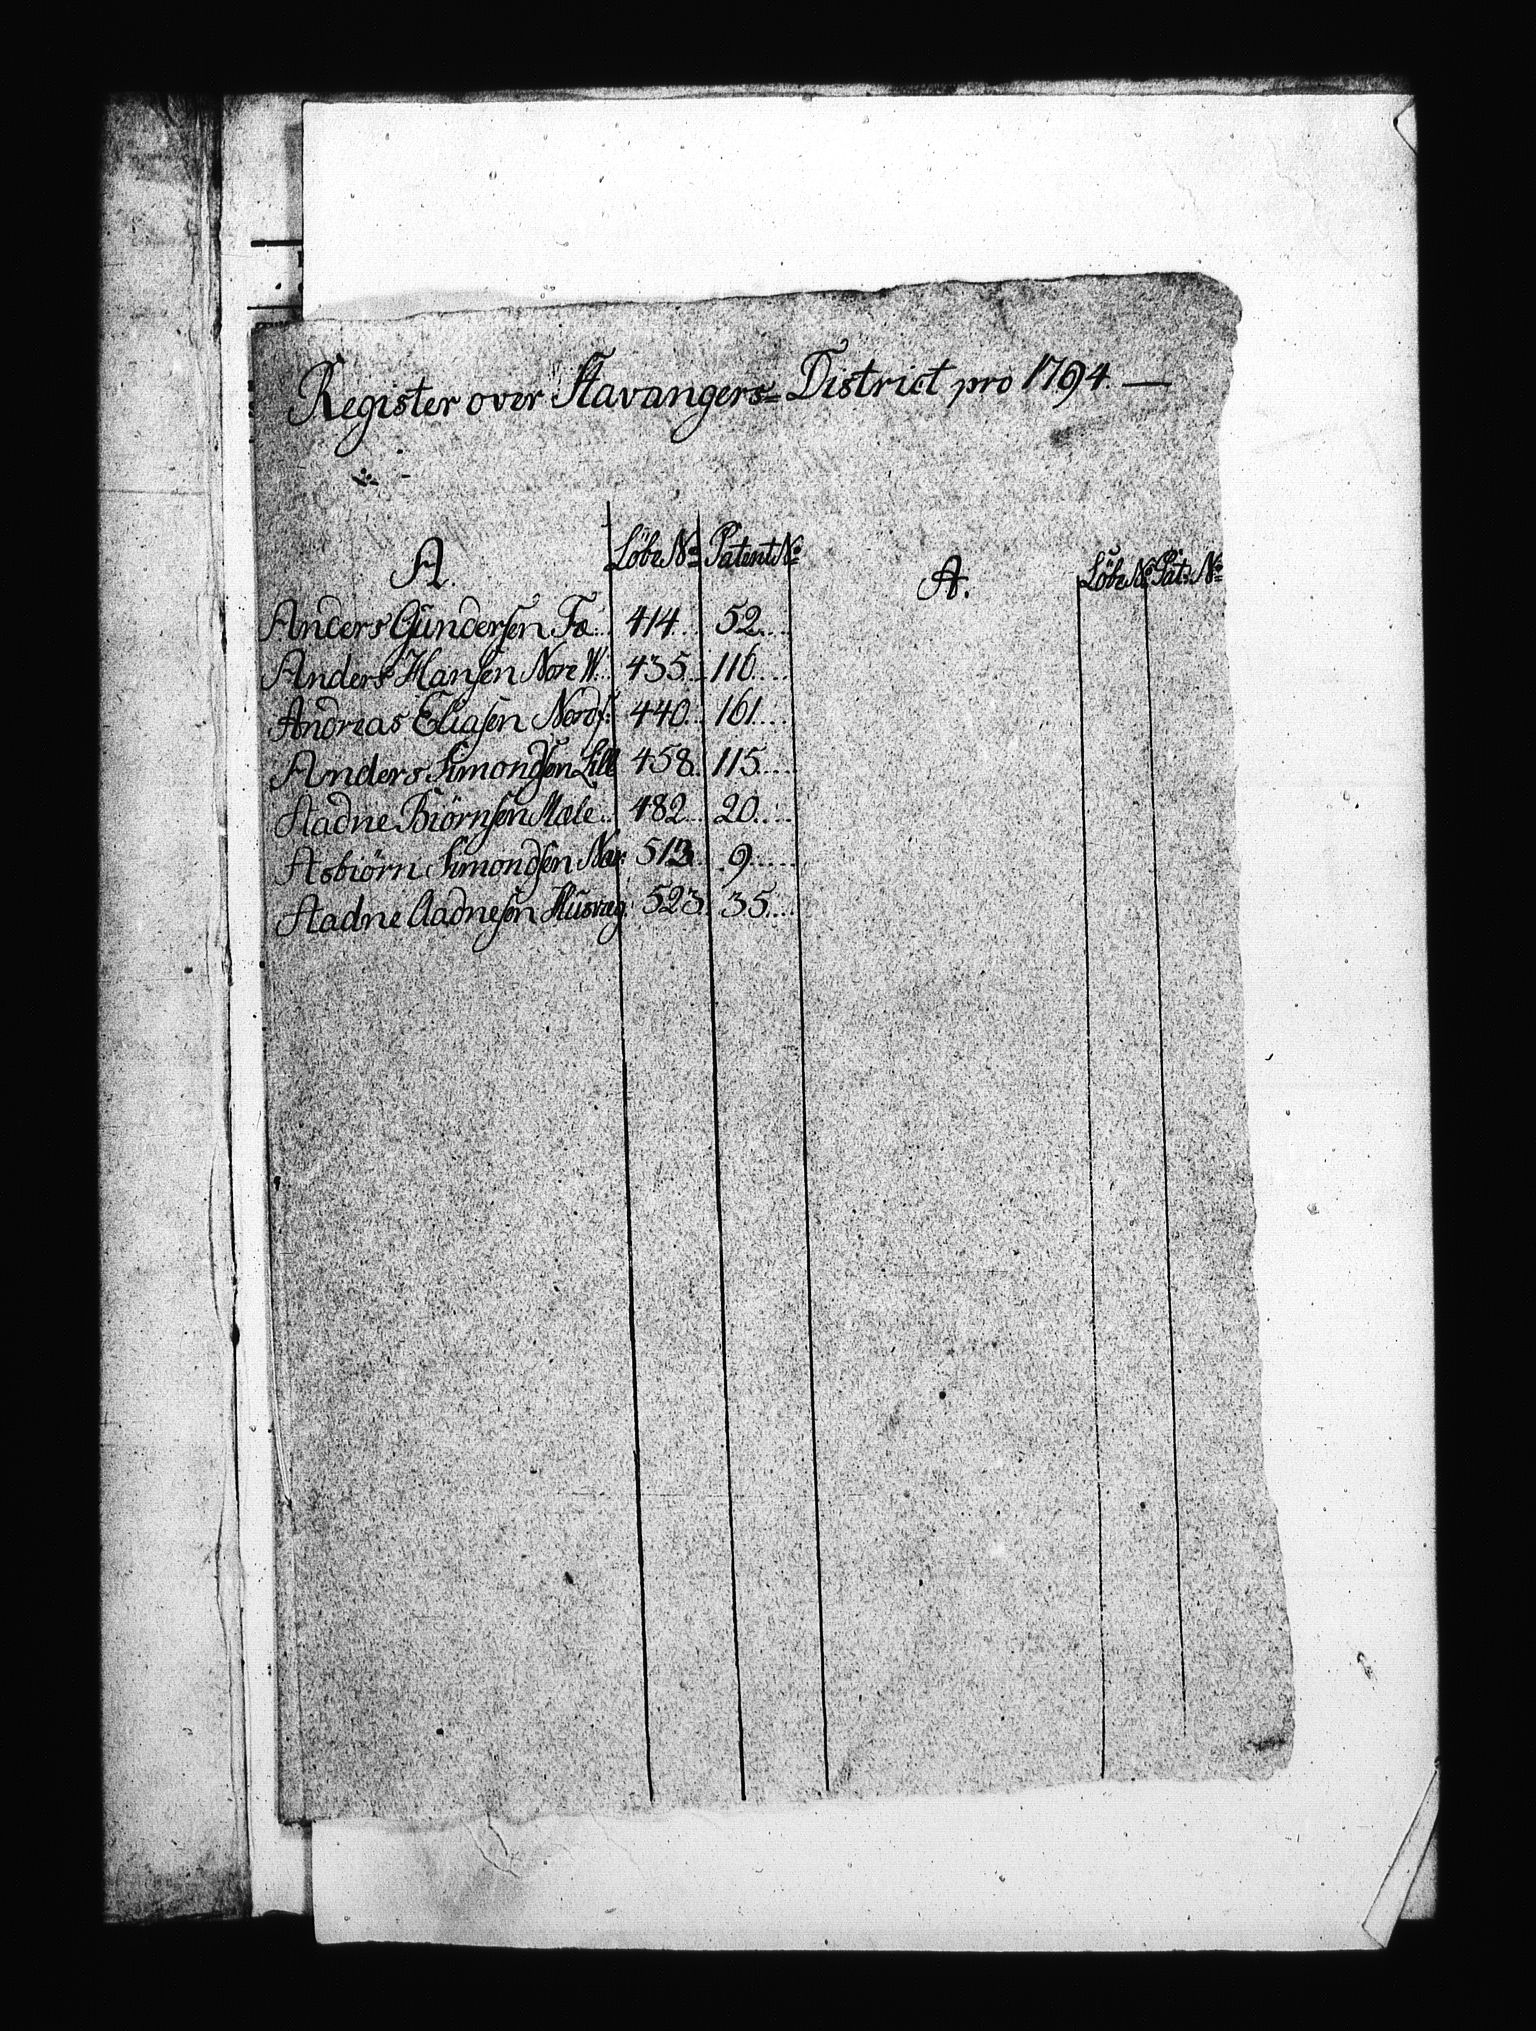 Register over Stavangers= District pro 1794. —
A. Løbe No Patent No A. Løbe No Pat: No
Anders Gundersen Fæ... 414... 52....
Anders Hansen Nore W... 435... 116....
Andreas Eliasen Nordf: 440... 161....
Anders Simondsen Lill 458... 115....
Aadne Biørnsen Mæle.. 482... 20....
Asbiørn Simondsen Næs: 513... 9.....
Aadne Aadnesen Husvæg: 523. 35....